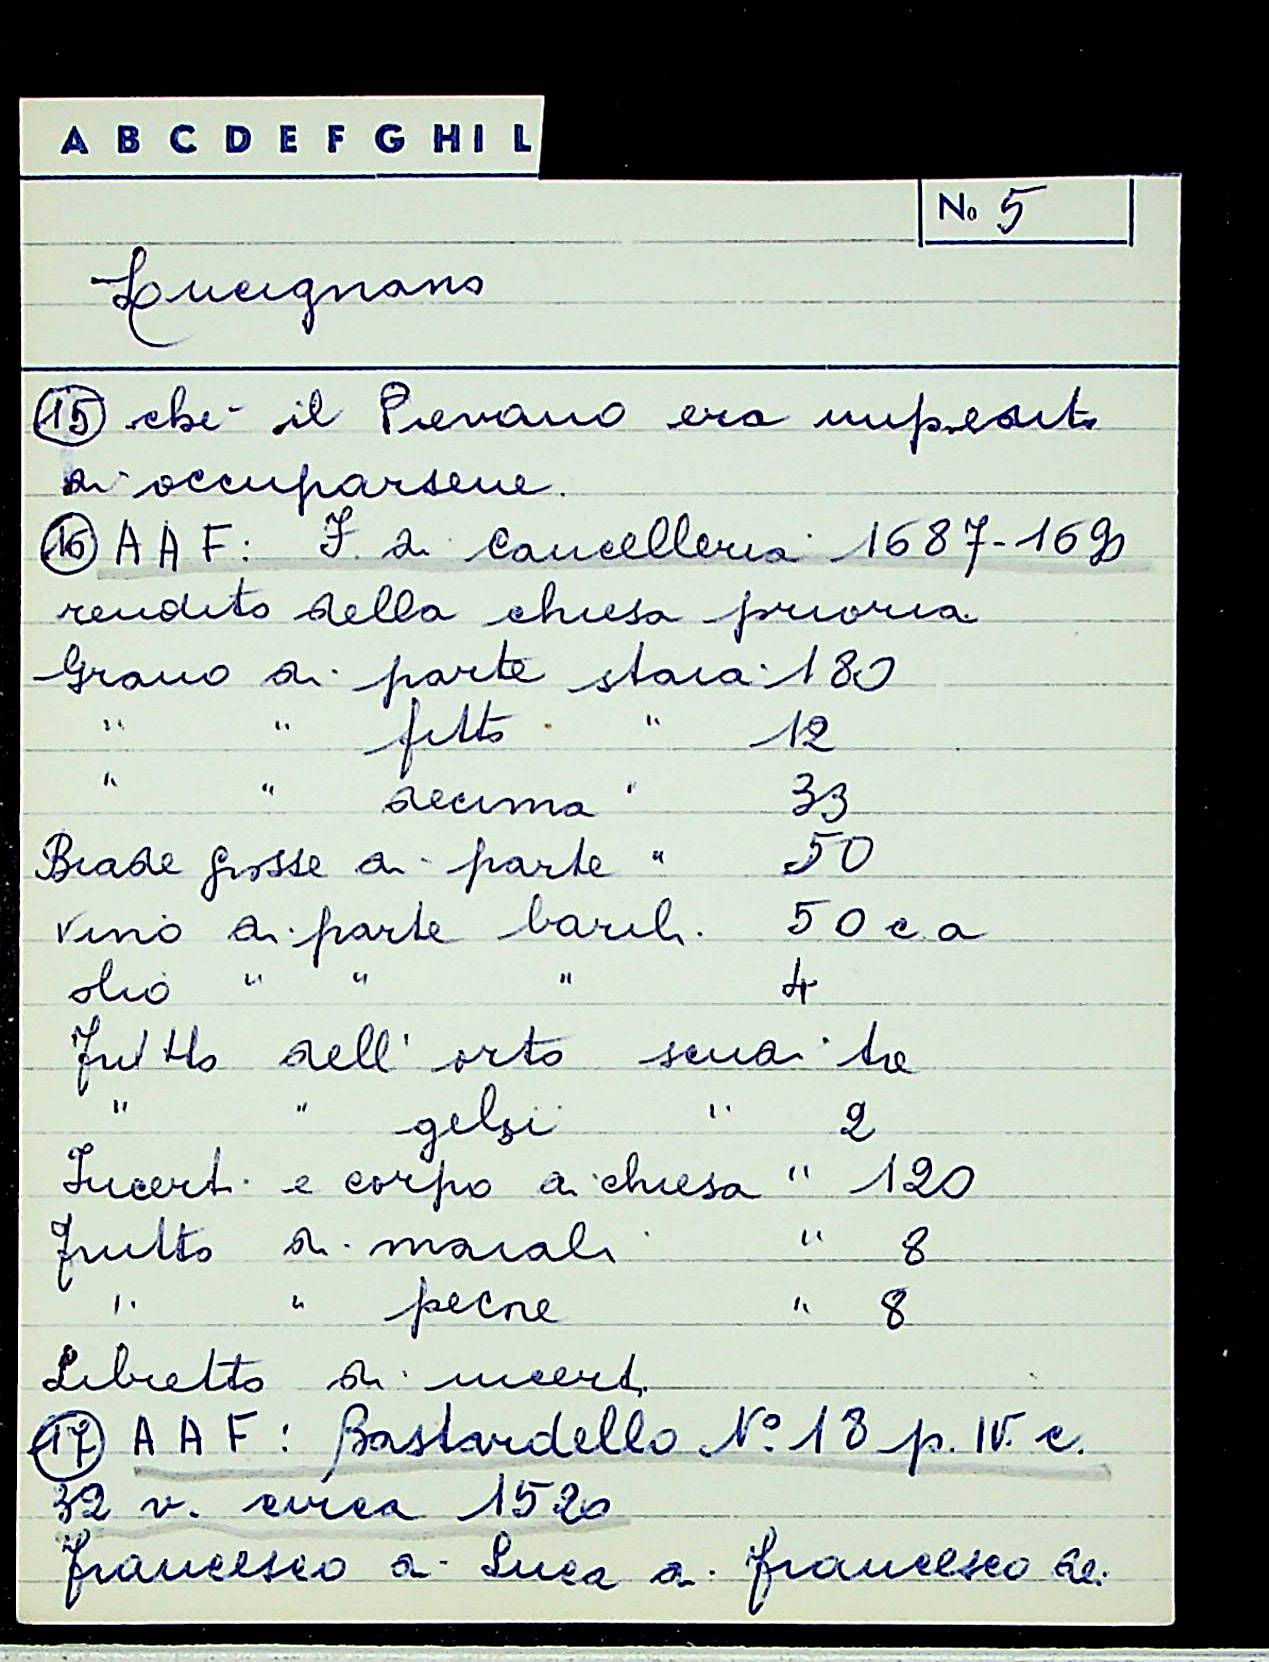 A B C D E F G H I L
No 5
Lucignano
15 che il Pievano era impedito
di occuparsene.
16 A A F: F. di Cancelleria 1687-1690
rendito della chiesa prioria
Grano di parte staia 180
" " fitto " 12
" " decima " 33
Biade grosse di parte " 50
vino di parte barili 50 c.a
olio " " " 4
Frutto dell' orto scudi tre
" " gelsi " 2
Incerti e corpo di chiesa " 120
frutto di maiali " 8
" " pecore " 8
Libretto di incerti
17 A A F: Bastardello N° 18 p. IV. c.
32 v. circa 1520
Francesco di Luca di Francesco de.